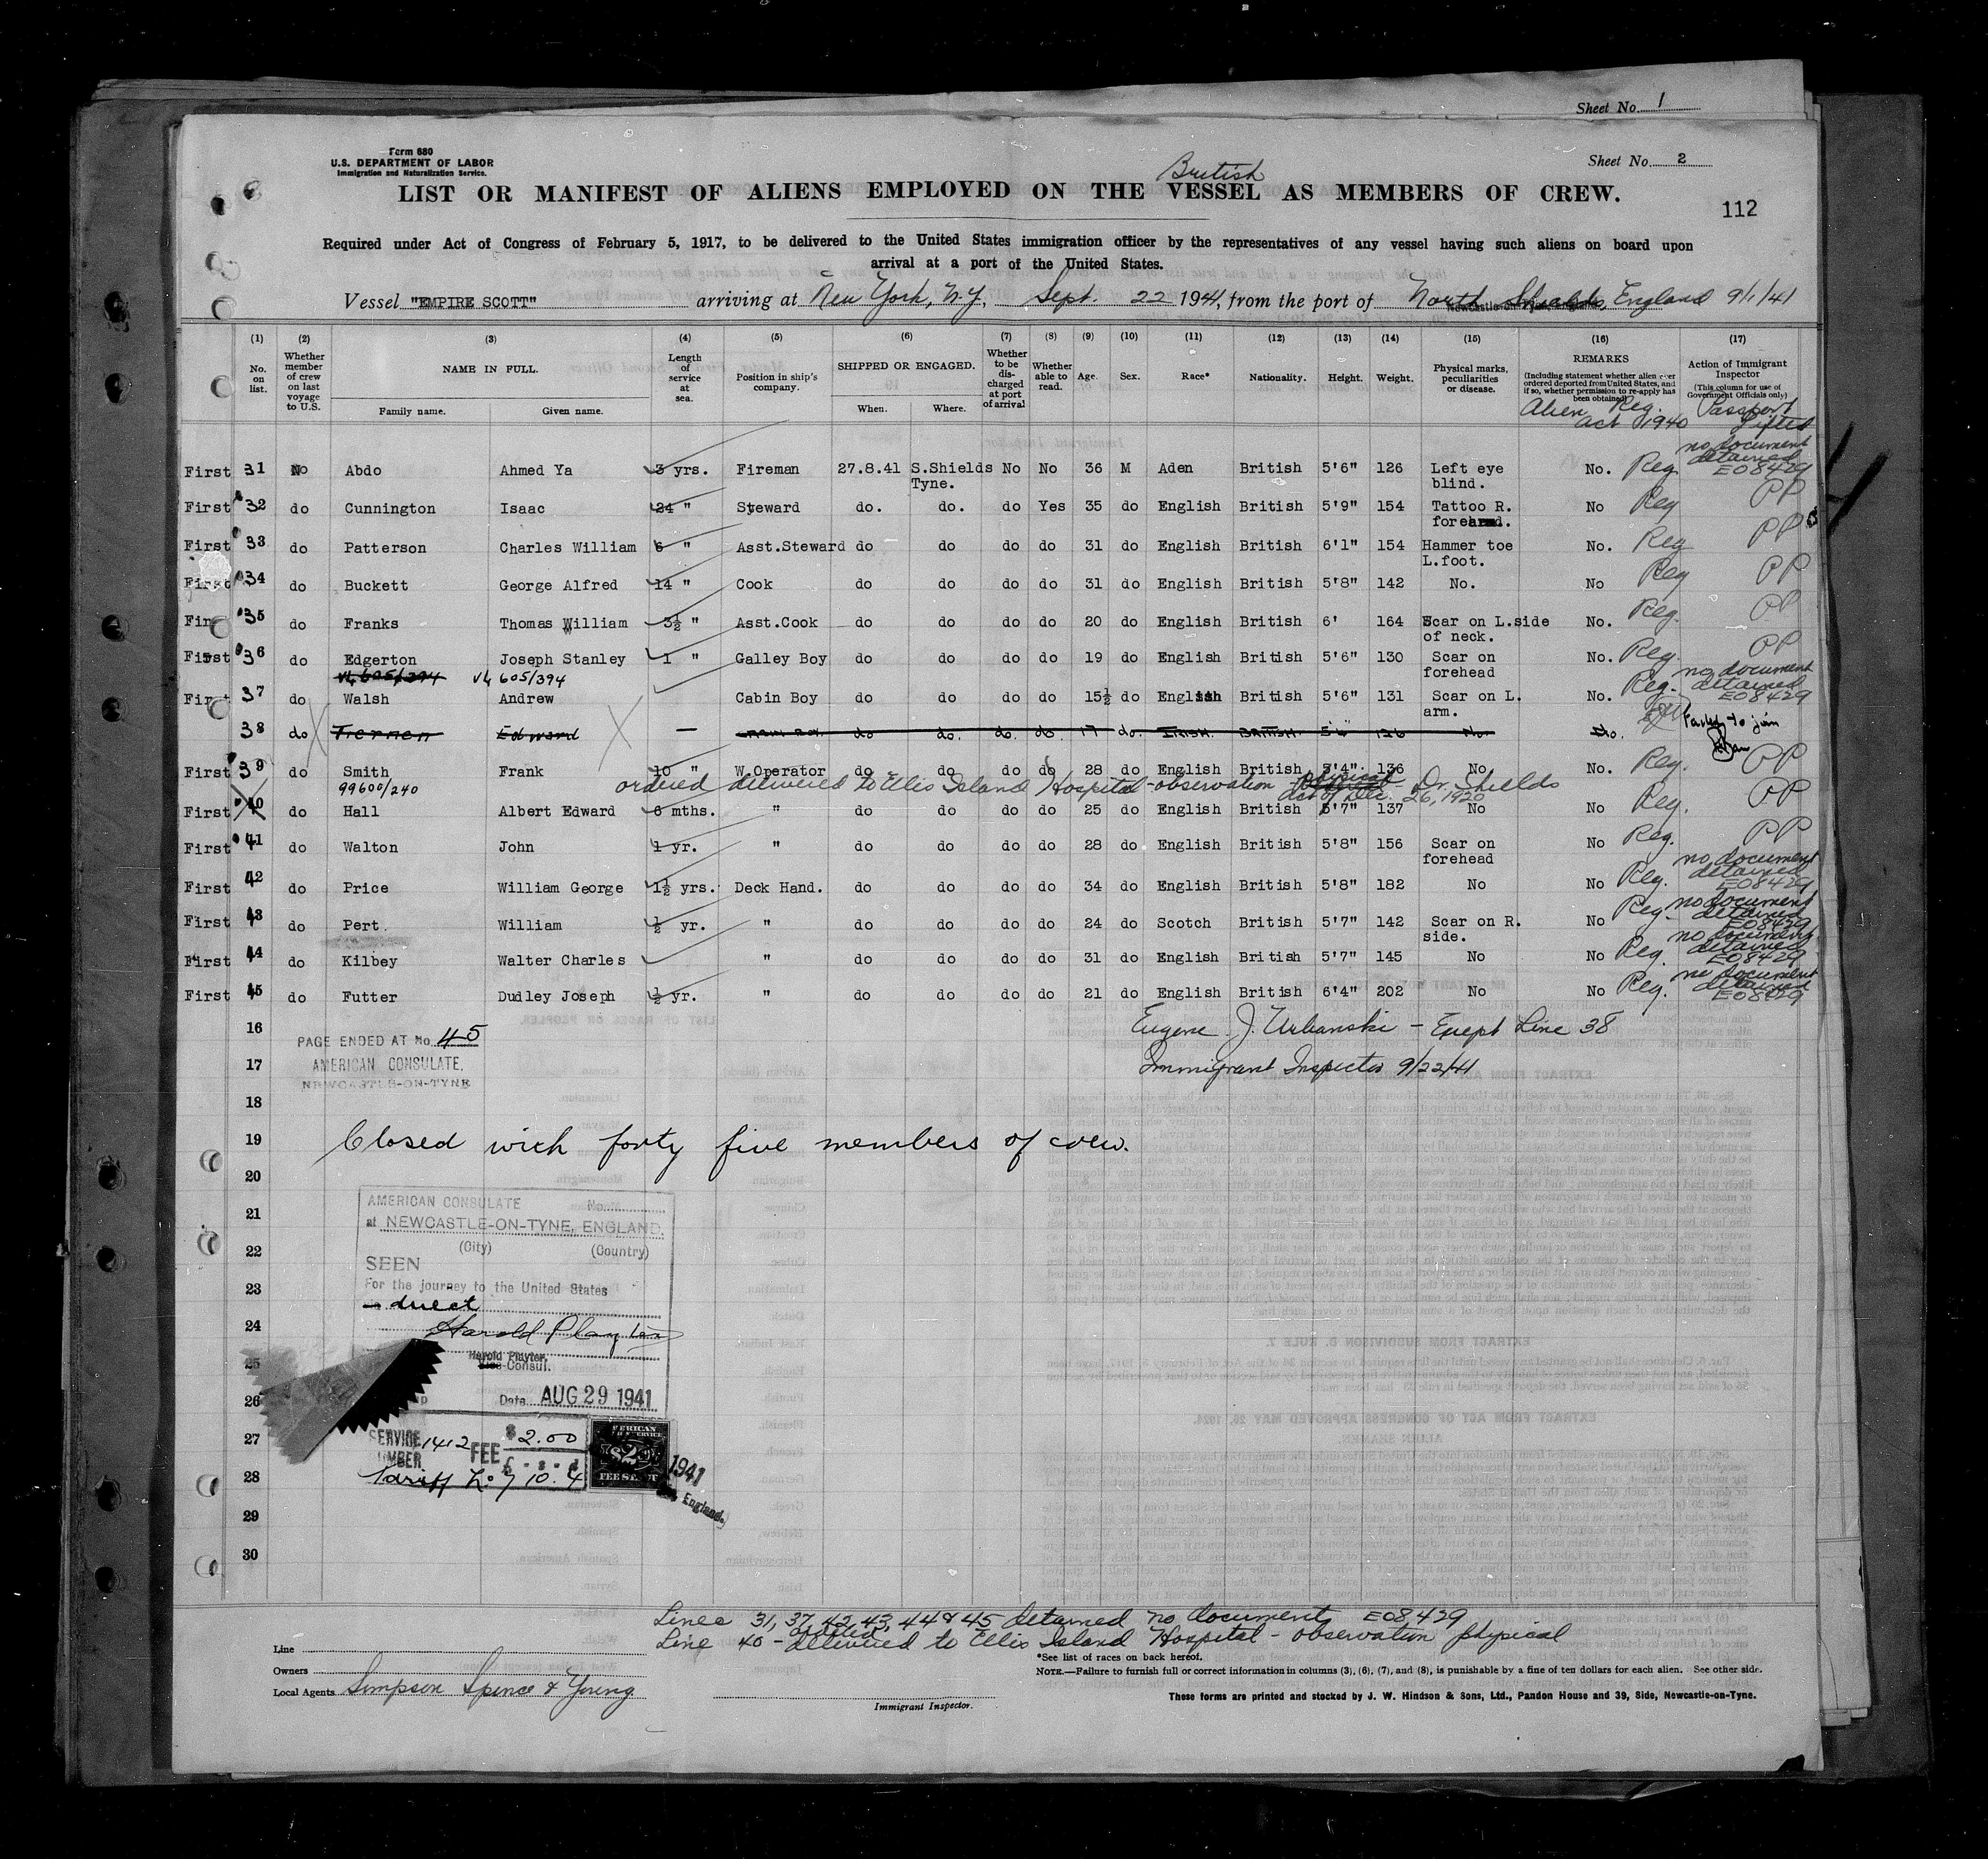 Sheet No. 1
Form 680
U.S. DEPARTMENT OF LABOR
Immigration and Naturalization Service.
Sheet No. 2
British
LIST OR MANIFEST OF ALIENS EMPLOYED ON THE VESSEL AS MEMBERS OF CREW.
112
Required under Act of Congress of February 5, 1917, to be delivered to the United States immigration officer by the representatives of any vessel having such aliens on board upon
arrival at a port of the United States.
Vessel "EMPIRE SCOTT" arriving at New York, N.Y., Sept. 22 1941, from the port of North Shields, England 9/1/41
(1) (2) (3) (4) (5) (6) (7) (8) (9) (10) (11) (12) (13) (14) (15) (16) (17)
No. on list.
Whether member of crew on last voyage to U.S.
NAME IN FULL.
Family name. Given name.
Length of service at sea.
Position in ship's company.
SHIPPED OR ENGAGED.
When. Where.
Whether to be discharged at port of arrival
Whether able to read.
Age. Sex. Race* Nationality. Height. Weight.
Physical marks, peculiarities or disease.
REMARKS
(Including statement whether alien ever ordered deported from United States, and if so, whether permission to re-apply has been obtained)
Action of Immigrant Inspector
(This column for use of Government Officials only)
Alien Reg. Act 1940
Passport lifted
no document detained E08429
First 31 No Abdo Ahmed Ya 3 yrs. Fireman 27.8.41 S.Shields Tyne. No No 36 M Aden British 5'6" 126 Left eye blind. No. Reg.
First 32 do Cunnington Isaac 24 " Steward do. do. do Yes 35 do English British 5'9" 154 Tattoo R. forearm. No Reg PP
First 33 do Patterson Charles William 6 " Asst.Steward do do do do 31 do English British 6'1" 154 Hammer toe L.foot. No. Reg PP
First 34 do Buckett George Alfred 14 " Cook do do do do 31 do English British 5'8" 142 No. No Reg PP
First 35 do Franks Thomas William 3½ " Asst.Cook do do do do 20 do English British 6' 164 Scar on L.side of neck. No. Reg. PP
First 36 do Edgerton Joseph Stanley 1 " Galley Boy do do do do 19 do English British 5'6" 130 Scar on forehead No. Reg. PP
VL 605/394 VL 605/394
First 37 do Walsh Andrew Cabin Boy do do do do 15½ do English British 5'6" 131 Scar on L. arm. No. Reg. no document detained E08429
38 do Tiernen Edward — do do. do. do. 17 do. IRISH. BRITISH. 5'6" 126 No. No. Failed to join
First 39 do Smith Frank 10 " W.Operator do do do do 28 do English British 5'4" 136 No No. Reg. PP
99600/240 ordered delivered to Ellis Island Hospital - observation physical - Dr. Shields
Act of Dec. 26, 1920
First 40 do Hall Albert Edward 6 mths. " do do do do 25 do English British 5'7" 137 No No Reg. PP
First 41 do Walton John 1 yr. " do do do do 28 do English British 5'8" 156 Scar on forehead No Reg. PP
First 42 do Price William George 1½ yrs. Deck Hand. do do do do 34 do English British 5'8" 182 No No Reg. no document detained E08429
First 43 do Pert. William ½ yr. " do do do do 24 do Scotch British 5'7" 142 Scar on R. side. No Reg. no document detained E08429
First 44 do Kilbey Walter Charles " do do do do 31 do English British 5'7" 145 No No Reg. no document detained E08429
First 45 do Futter Dudley Joseph ½ yr. " do do do do 21 do English British 6'4" 202 No No Reg. no document detained E08429
16 Eugene J. Urbanski - Except Line 38
PAGE ENDED AT No. 45
17 AMERICAN CONSULATE. Immigrant Inspector 9/22/41
NEWCASTLE-ON-TYNE
18
19 Closed with forty five members of crew.
20
AMERICAN CONSULATE No.
21 at NEWCASTLE-ON-TYNE, ENGLAND.
22 (City) (Country)
SEEN
23 For the journey to the United States
direct
24 Harold Playter
25 Harold Playter.
Vice-Consul.
26 Date AUG 29 1941
27 SERVICE NUMBER 1412 FEE $2.00
£ - s - d
28 Tariff No 7 10. 4
1941
England.
29
30
Lines 31, 37, 42, 43, 44 & 45 detained no documents E08429
Line 40 - ordered delivered to Ellis Island Hospital - observation physical
*See list of races on back hereof.
Line
Owners
NOTE.—Failure to furnish full or correct information in columns (3), (6), (7), and (8), is punishable by a fine of ten dollars for each alien. See other side.
Local Agents Simpson Spence & Young
Immigrant Inspector.
These forms are printed and stocked by J. W. Hindson & Sons, Ltd., Pandon House and 39, Side, Newcastle-on-Tyne.